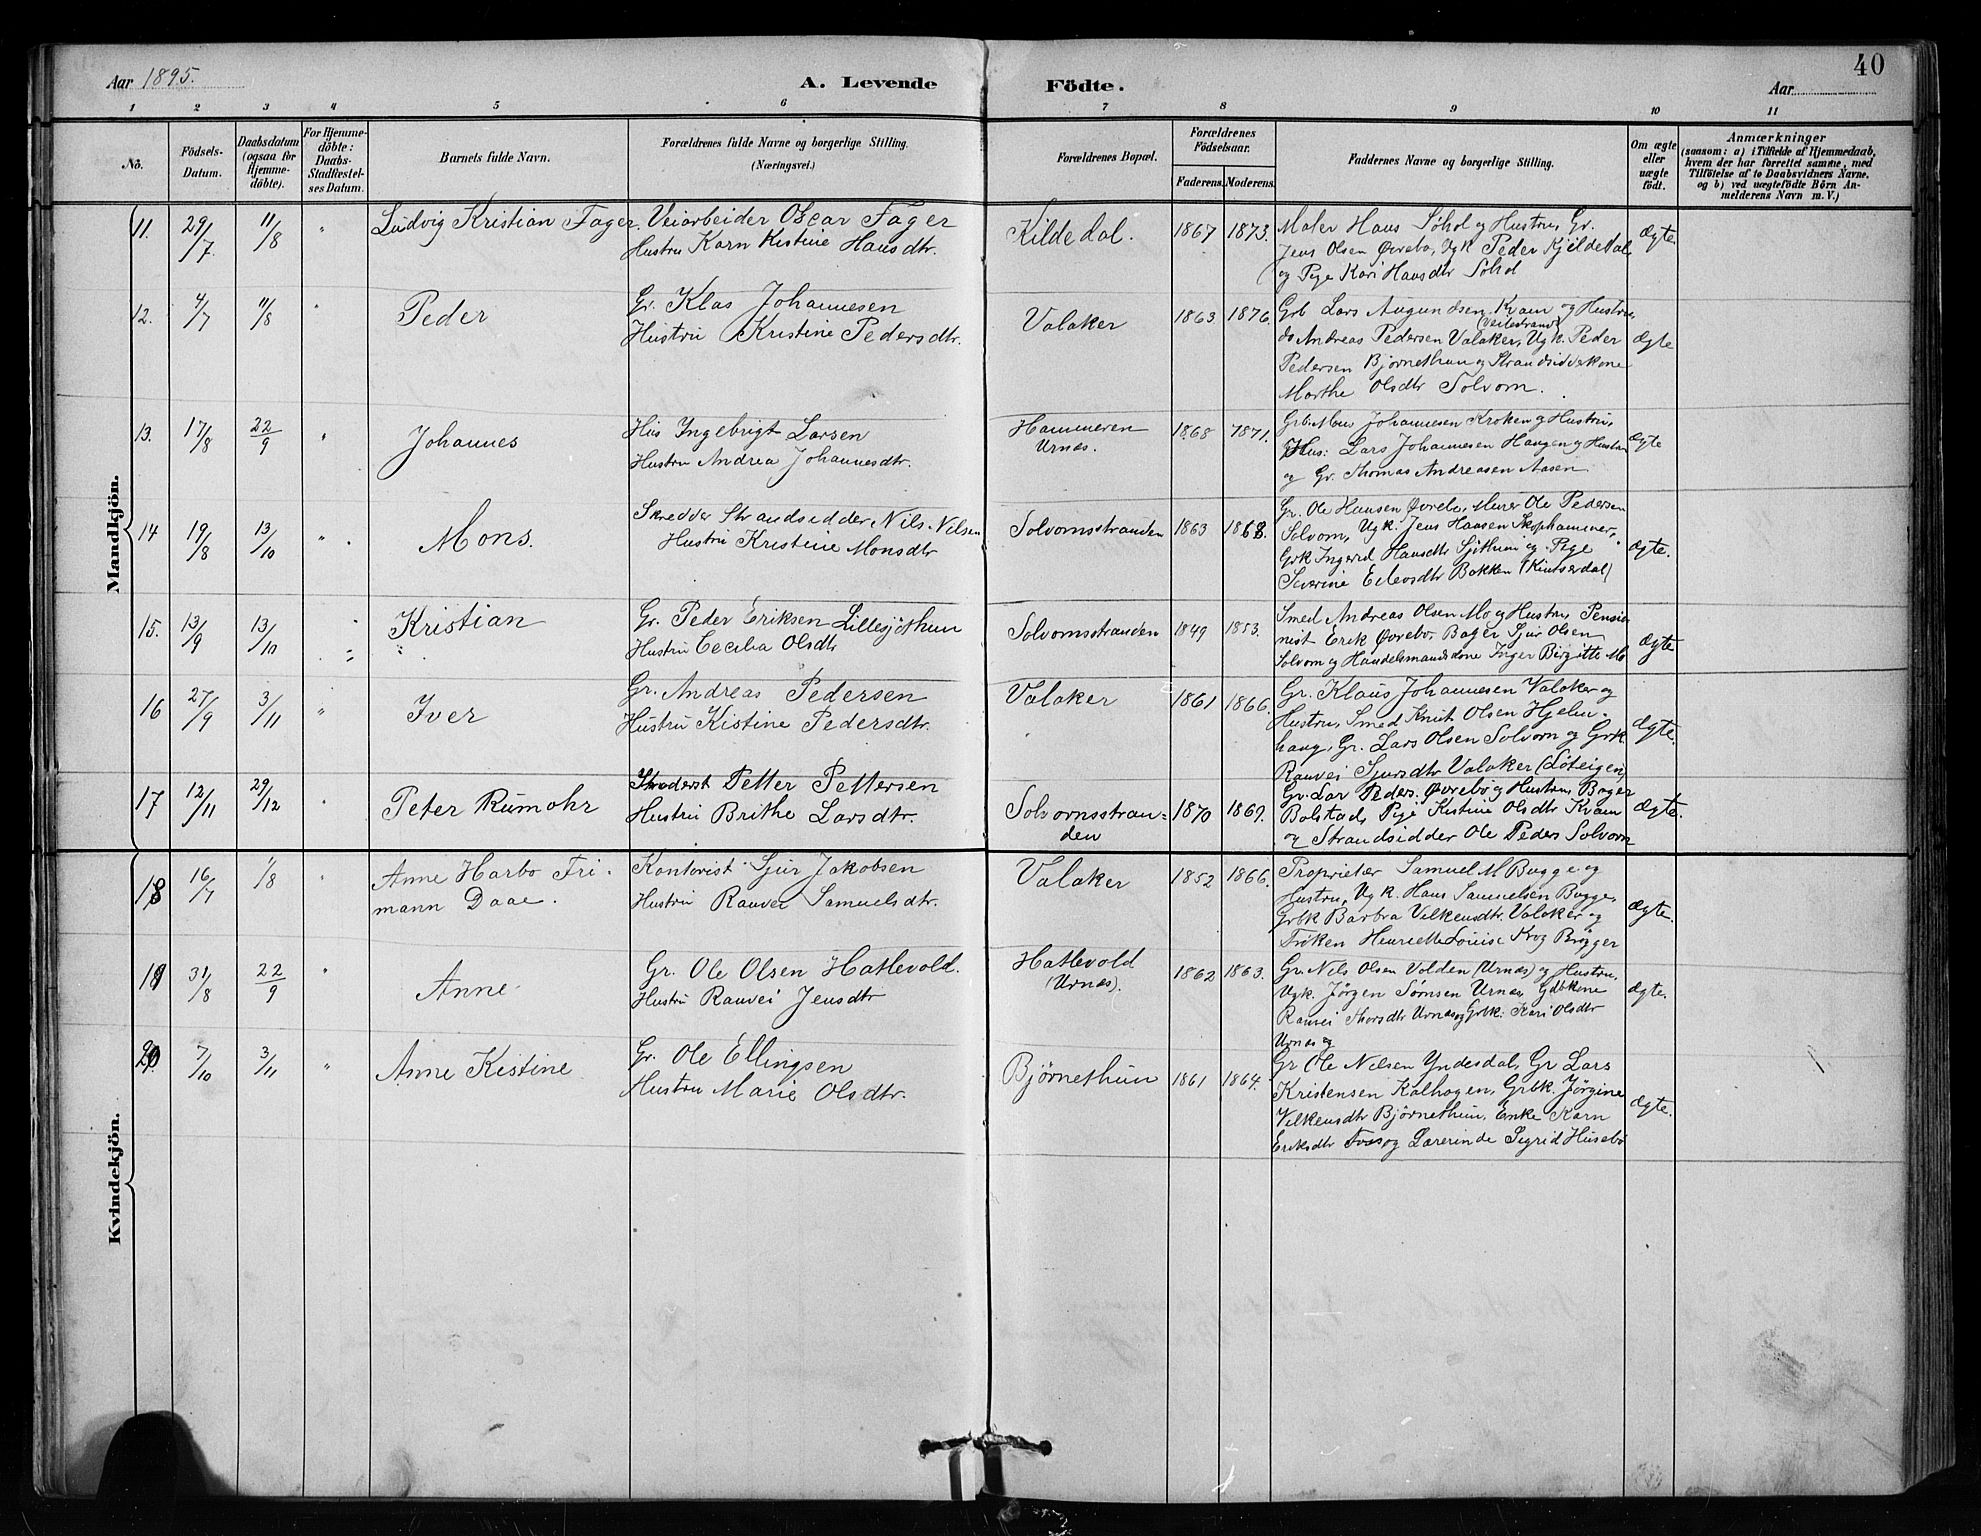 40
Aar 1895. A. Levende Födte. Aar
1 2 3 4 5 6 7 8 9 10 11
No.
Födsels-Datum.
Daabsdatum (ogsaa for Hjemme-döbte).
For Hjemme-döbte: Daabs-Stadfæstel-ses Datum.
Barnets fulde Navn.
Forældrenes fulde Navne og borgerlige Stilling.
(Næringsvei.)
Forældrenes Bopæl.
Forældrenes Födselsaar.
Faderens. Moderens.
Faddernes Navne og borgerlige Stilling.
Om ægte eller uægte födt.
Anmærkninger
(saasom: a) i Tilfælde af Hjemmedaab,
hvem der har forrettet samme, med
Tilföielse af to Daabsvidners Navne.
og b) ved uægtefödte Börn An-
melderens Navn m. V.)
Mandkjön.
11. 29/7. 11/8 " Ludvig Kristian Fager. Veiarbeider Oscar Fager
Hustru Karn Kistine Hansdtr.
Kildedal. 1867 1873.
Maler Hans Søhol og Hustru, Gr.
Jens Olsen Øvrebø, Ugk Peder Kjildedal
og Pige Kari Hansdtr Søhol
Ægte
12. 4/7 11/8 " Peder
Gr. Klas Johannesen
Hustru Kristine Pedersdtr.
Valaker 1863 1876.
Grb Lars Augundsen Kvam og Hustru,
(Veitestrand)
do Andreas Pedersen Valaker, Ugk. Peder
Pedersen Bjørnethun og Strandsidderkone
Marthe Olsdtr Solvorn.
Ægte
13. 17/8 22/9 " Johannes
Hus Ingebrigt Larsen
Hustru Andrea Johannesdtr.
Hammeren
Urnæs.
1868 1871.
Johannesen Kroken og Hustru,
Hus: Lars Johannesen Haugen og Hustru
og Gr. Thomas Andreasen Aasen.
Ægte
14 19/8 13/10 " Mons.
Skredder Strandsidder Nils Nilsen
Hustru Kristine Monsdtr
Solvornsstranden 1863 1868.
Gr. Ole Hansen Øvrebø, Murer Ole Pedersen
Solvorn, Ugk. Jens Hansen Skophammer,
Grk Ingerid Hansdtr Sjøthun og Pige
Severine Bakken
Ægte.
15. 13/9 13/10 " Kristian
Gr. Peder Eriksen Lillesjøthun
Hustru Cecilia Olsdtr
Solvornsstranden 1849 1853.
Smed Andreas Olsen Mo og Hustru, Pensio
nist Erik Øvrebø, Bager Sjur Olsen
Solvorn og Handelsmandskone Inger Birgitte Mo
Ægte
16 27/9 3/11 " Iver
Gr. Andreas Pedersen
Hustru Kistine Pedersdtr.
Valaker 1861 1866.
Gr. Klaus Johannesen Valaker og
Hustru, Smed Knut Olsen Hjelm-
haug, Gr. Lars Olsen Solvorn og Grk
Ranvei Sjursdtr Valaker (Løteigen)
Ægte.
17 12/11 29/12 " Peter Rumohr
Petter Pettersen
Hustru Brithe Larsdtr.
Solvornsstran=
den
1870 1869.
Gr. Lar Peders. Øvrebø og Hustru, Bager
Bolstad, Pige Kistine Olsdtr Kvam
og Strandsidder Ole Peders Solvorn
Ægte.
Kvindekjön.
18 16/7 1/8 " Anne Harbo Fri-
mann Daae.
Kontorist Sjur Jakobsen
Hustru Ranvei Samuelsdtr.
Valaker 1852 1866.
Proprietær Samuel M Bugge og
Hustru, Ugk. Hans Samuelsen Bugge,
Grbk Barbra Vilkensdtr. Valaker og
Frøken Henriette Louise Krog Brøgger
Ægte.
19 31/8 22/9 " Anne
Gr. Ole Olsen Hatlevold.
Hustru Ranvei Jensdtr
Hatlevold
(Urnæs).
1862 1863.
Gr. Nils Olsen Volden (Urnæs) og Hustru,
Ugk. Jørgen Sørnsen Urnæs, Gdbkone
Ranvei Thorsdtr Urnæs og Grbk: Kari Olsdtr
Urnæs og
Ægte.
20. 7/10 3/11 " Anne Kistine
Gr. Ole Ellingsen
Hustru Marie Olsdtr.
Bjørnethun 1861 1864.
Gr Ole Nilsen Yndesdal, Gr Lars
Kristensen Kalhagen, Grbk. Jørgine
Vilkensdtr Bjørnethun, Enke Karn
Eriksdtr og Lærerinde Sigrid Husebø
Ægte.